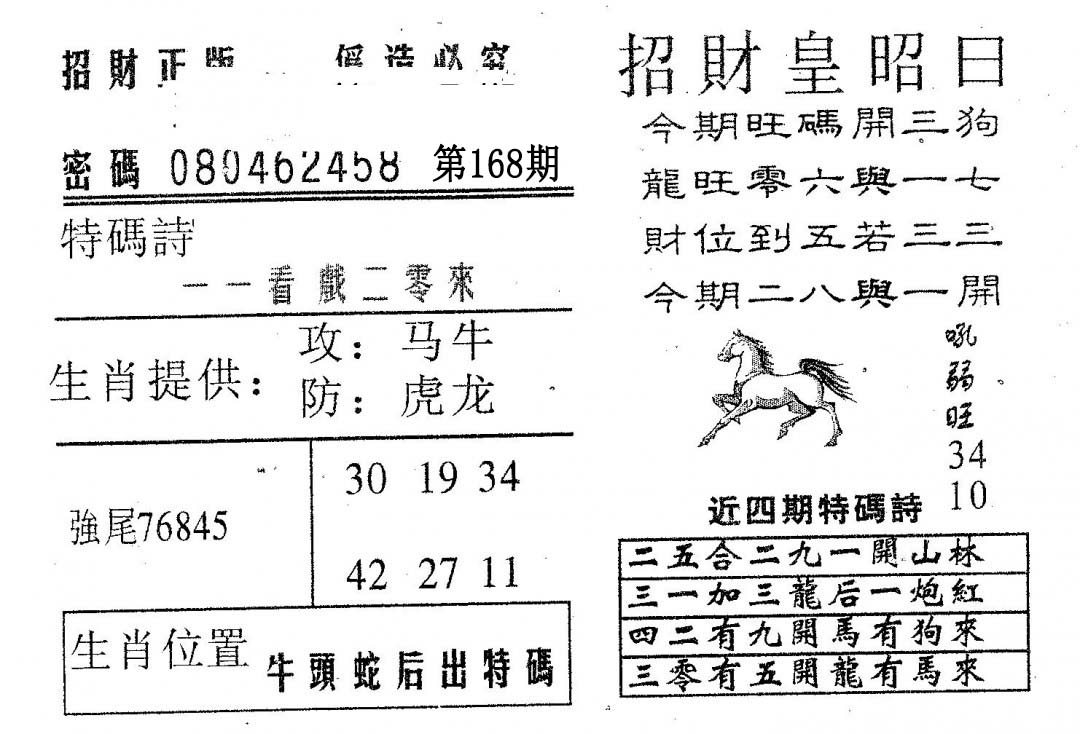 招財正版 僞造必究
密碼 080462458 第168期
特碼詩
一一看戲二零來
生肖提供：
攻：马牛
防：虎龙
強尾76845
30 19 34
42 27 11
生肖位置 牛頭蛇后出特碼
招財皇昭日
今期旺碼開三狗
龍旺零六與一七
財位到五若三三
今期二八與一開
吼
弱
旺
34
10
近四期特碼詩
二五合二九一開山林
三一加三龍后一炮紅
四二有九開馬有狗來
三零有五開龍有馬來